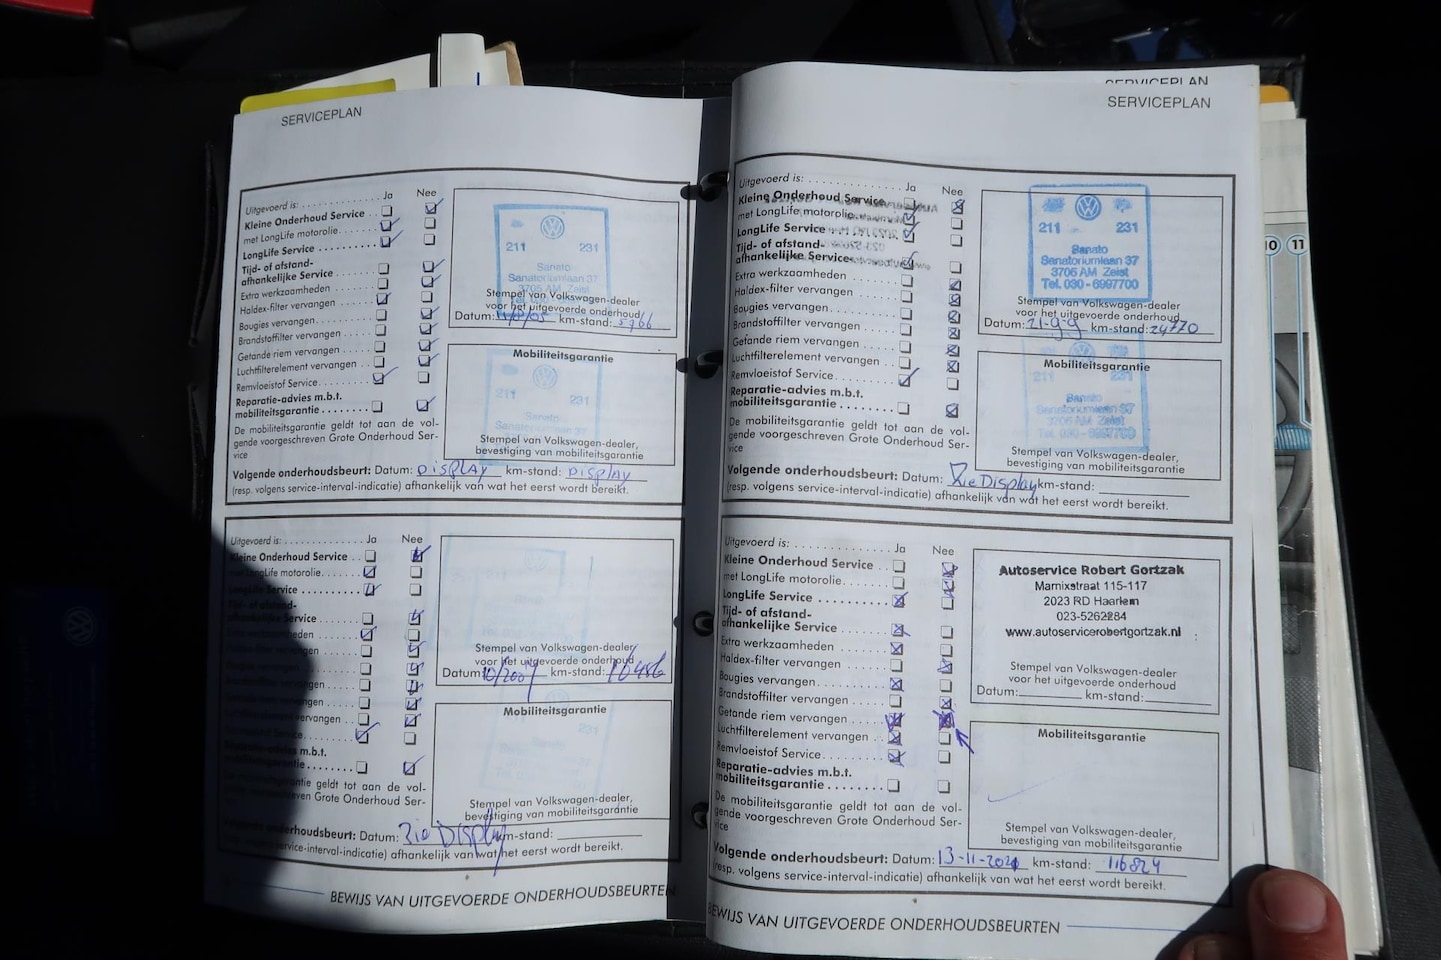 SERVICEPLAN
Uitgevoerd is: Ja Nee
Kleine Onderhoud Service
met LongLife motorolie
LongLife Service
Tijd- of afstand-
afhankelijke Service
Extra werkzaamheden
Haldex-filter vervangen
Bougies vervangen
Brandstoffilter vervangen
Getande riem vervangen
Luchtfilterelement vervangen
Remvloeistof Service
Reparatie-advies m.b.t.
mobiliteitsgarantie
De mobiliteitsgarantie geldt tot aan de vol-
gende voorgeschreven Grote Onderhoud Ser-
vice
211 231
Sanato
Sanatoriumlaan 37
3705 AM Zeist
Stempel van Volkswagen-dealer
voor het uitgevoerde onderhoud
Datum: km-stand:
Mobiliteitsgarantie
211 231
Stempel van Volkswagen-dealer,
bevestiging van mobiliteitsgarantie
Volgende onderhoudsbeurt: Datum: DISPLAY km-stand: DISPLAY
(resp. volgens service-interval-indicatie) afhankelijk van wat het eerst wordt bereikt.
Uitgevoerd is: Ja Nee
Kleine Onderhoud Service
met LongLife motorolie
LongLife Service
Tijd- of afstand-
afhankelijke Service
vervangen
vervangen
vervangen
Service
m.b.t.
mobiliteitsgarantie geldt tot aan de vol-
voorgeschreven Grote Onderhoud Ser-
Stempel van Volkswagen-dealer
voor het uitgevoerde onderhoud
Datum: km-stand: 10486
Mobiliteitsgarantie
Stempel van Volkswagen-dealer,
bevestiging van mobiliteitsgarantie
onderhoudsbeurt: Datum: Zie Display km-stand:
service-interval-indicatie) afhankelijk van wat het eerst wordt bereikt.
BEWIJS VAN UITGEVOERDE ONDERHOUDSBEURTEN
SERVICEPLAN
SERVICEPLAN
Uitgevoerd is: Ja Nee
Kleine Onderhoud Service
met LongLife motorolie
LongLife Service
Tijd- of afstand-
afhankelijke Service
Extra werkzaamheden
Haldex-filter vervangen
Bougies vervangen
Brandstoffilter vervangen
Getande riem vervangen
Luchtfilterelement vervangen
Remvloeistof Service
Reparatie-advies m.b.t.
mobiliteitsgarantie
De mobiliteitsgarantie geldt tot aan de vol-
gende voorgeschreven Grote Onderhoud Ser-
vice
211 231
Sanato
Sanatoriumlaan 37
3705 AM Zeist
Tel. 030 - 6997700
Stempel van Volkswagen-dealer
voor het uitgevoerde onderhoud
Datum: km-stand: 24770
Mobiliteitsgarantie
211 231
Sanato
Sanatoriumlaan 37
3705 AM Zeist
Tel. 030 - 6997700
Stempel van Volkswagen-dealer,
bevestiging van mobiliteitsgarantie
Volgende onderhoudsbeurt: Datum: Zie Display km-stand:
(resp. volgens service-interval-indicatie) afhankelijk van wat het eerst wordt bereikt.
Uitgevoerd is: Ja Nee
Kleine Onderhoud Service
met LongLife motorolie
LongLife Service
Tijd- of afstand-
afhankelijke Service
Extra werkzaamheden
Haldex-filter vervangen
Bougies vervangen
Brandstoffilter vervangen
Getande riem vervangen
Luchtfilterelement vervangen
Remvloeistof Service
Reparatie-advies m.b.t.
mobiliteitsgarantie
De mobiliteitsgarantie geldt tot aan de vol-
gende voorgeschreven Grote Onderhoud Ser-
vice
Autoservice Robert Gortzak
Marnixstraat 115-117
2023 RD Haarlem
023-5262284
www.autoservicerobertgortzak.nl
Stempel van Volkswagen-dealer
voor het uitgevoerde onderhoud
Datum: km-stand:
Mobiliteitsgarantie
Stempel van Volkswagen-dealer,
bevestiging van mobiliteitsgarantie
Volgende onderhoudsbeurt: Datum: km-stand: 116824
(resp. volgens service-interval-indicatie) afhankelijk van wat het eerst wordt bereikt.
BEWIJS VAN UITGEVOERDE ONDERHOUDSBEURTEN
10 11